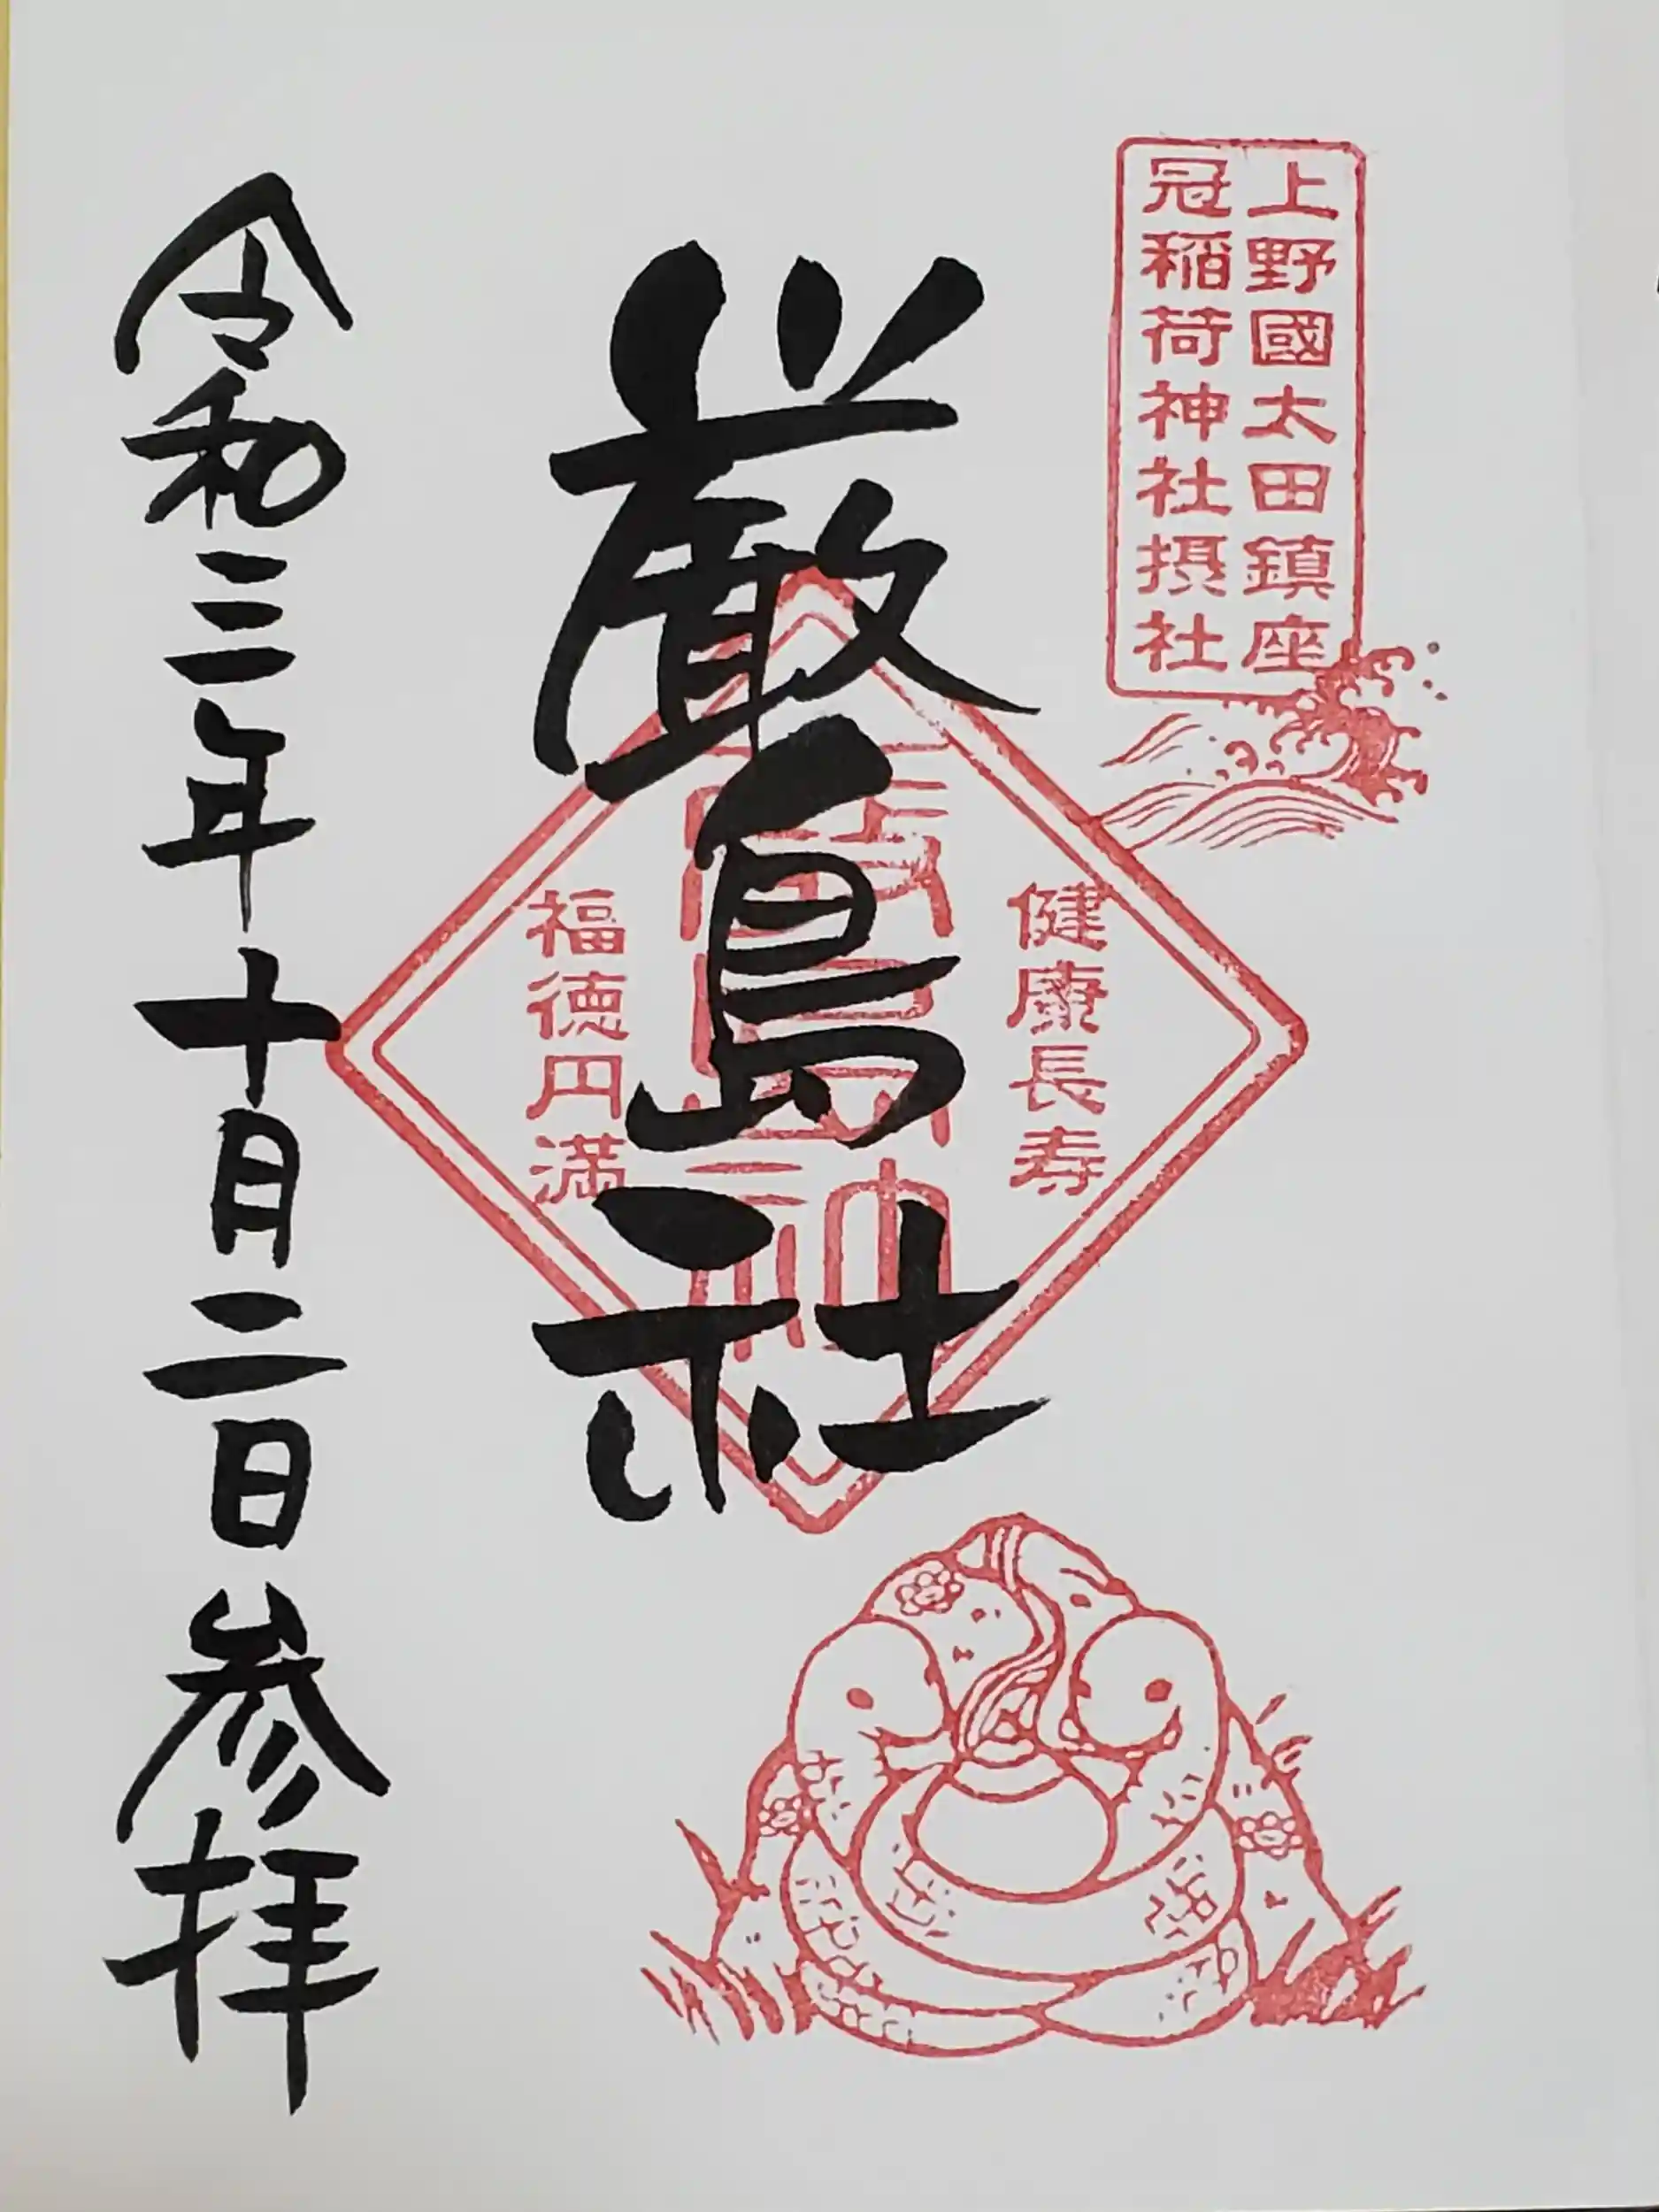 上野國太田鎮座
冠稲荷神社摂社
厳島社
健康長寿
福徳円満
令和三年十月二日参拝